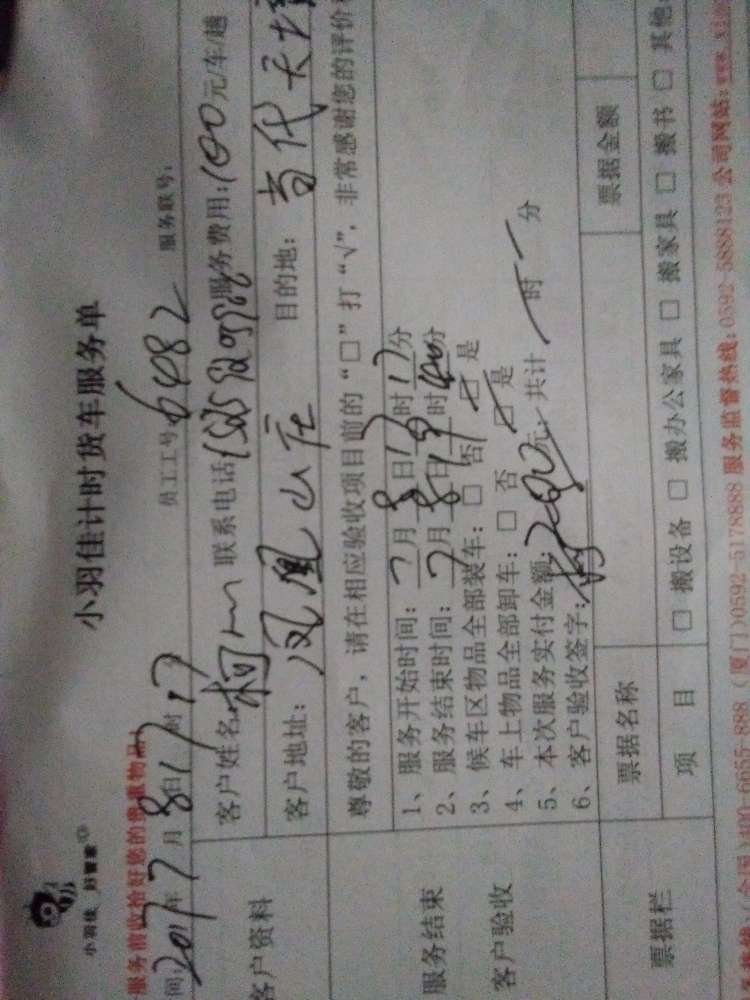 小羽佳 好管家
小羽佳计时货车服务单
服务前收拾好您的贵重物品!
间: 2017年7月8日17时17 员工工号: 6482 服务联号:
客户资料
客户姓名 柯 联系电话 服务费用: 100元/车/趟
客户地址: 凤凰山庄 目的地: 当代天境
尊敬的客户,请在相应验收项目前的“□”打“√”,非常感谢您的评价
服务结束
客户验收
1、服务开始时间: 7月8日17时17分
2、服务结束时间: 7月8日19时40分
3、候车区物品全部装车: □ 否 □ 是
4、车上物品全部卸车: □ 否 □ 是
5、本次服务实付金额: 元, 共计 时 分
6、客户验收签字:
票据栏
票据名称 票据金额
项 目 □ 搬设备 □ 搬办公家具 □ 搬家具 □ 搬书 □ 其他
400-6655-888 (厦门)0592-5178888 服务监督热线: 0592-5888123 公司网站: